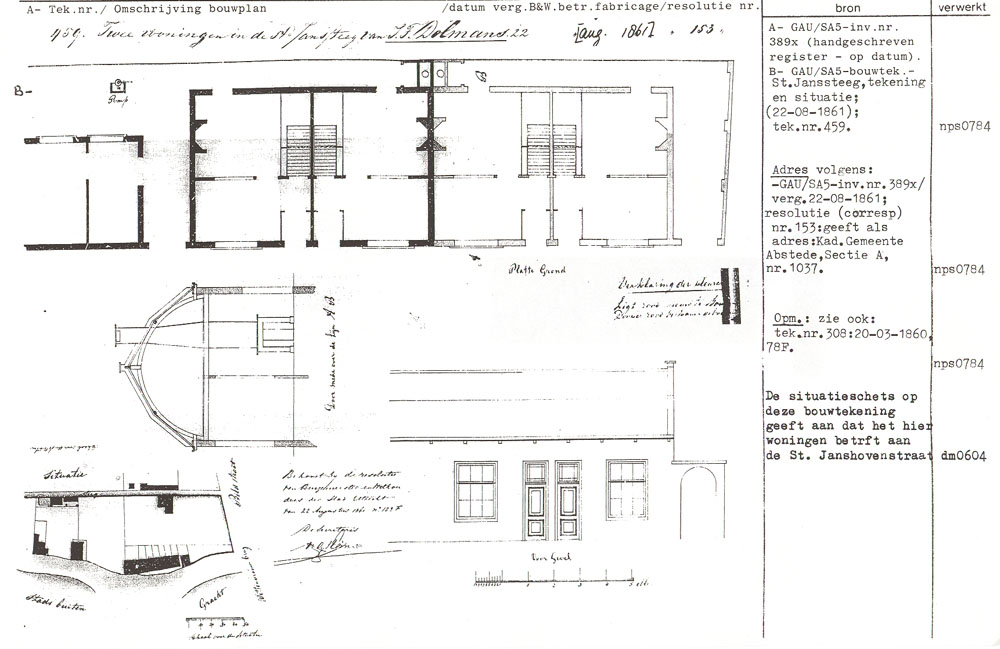 A- Tek.nr./ Omschrijving bouwplan /datum verg.B&W.betr.fabricage/resolutie nr. bron verwerkt
459. Twee woningen in de St. Jansteeg van J.F. Dolmans. 22 [aug. 1861] " 153 "
B-
Pomp
B
A
Platte Grond
Verklaring der kleuren
Ligt rood nieuw te
Donker rood bestaande
Door snede over de lijn A B
Situatie
Behoort bij de resolutie
van Burgemeester en Wethou
ders der Stad Utrecht
van 22 Augustus 1861 No 153 F
De Secretaris
Stads buiten
Gracht
Schaal van de situatie
Voor Gevel
1 2 3 4 5 ell.
A- GAU/SA5-inv.nr.
389x (handgeschreven
register - op datum).
B- GAU/SA5-bouwtek.-
St.Janssteeg,tekening
en situatie;
(22-08-1861);
tek.nr.459. nps0784
Adres volgens:
-GAU/SA5-inv.nr.389x/
verg.22-08-1861;
resolutie (corresp)
nr.153:geeft als
adres:Kad.Gemeente
Abstede,Sectie A,
nr.1037. nps0784
Opm.: zie ook:
tek.nr.308:20-03-1860,
78F. nps0784
De situatieschets op
deze bouwtekening
geeft aan dat het hier
woningen betrft aan
de St. Janshovenstraat dm0604